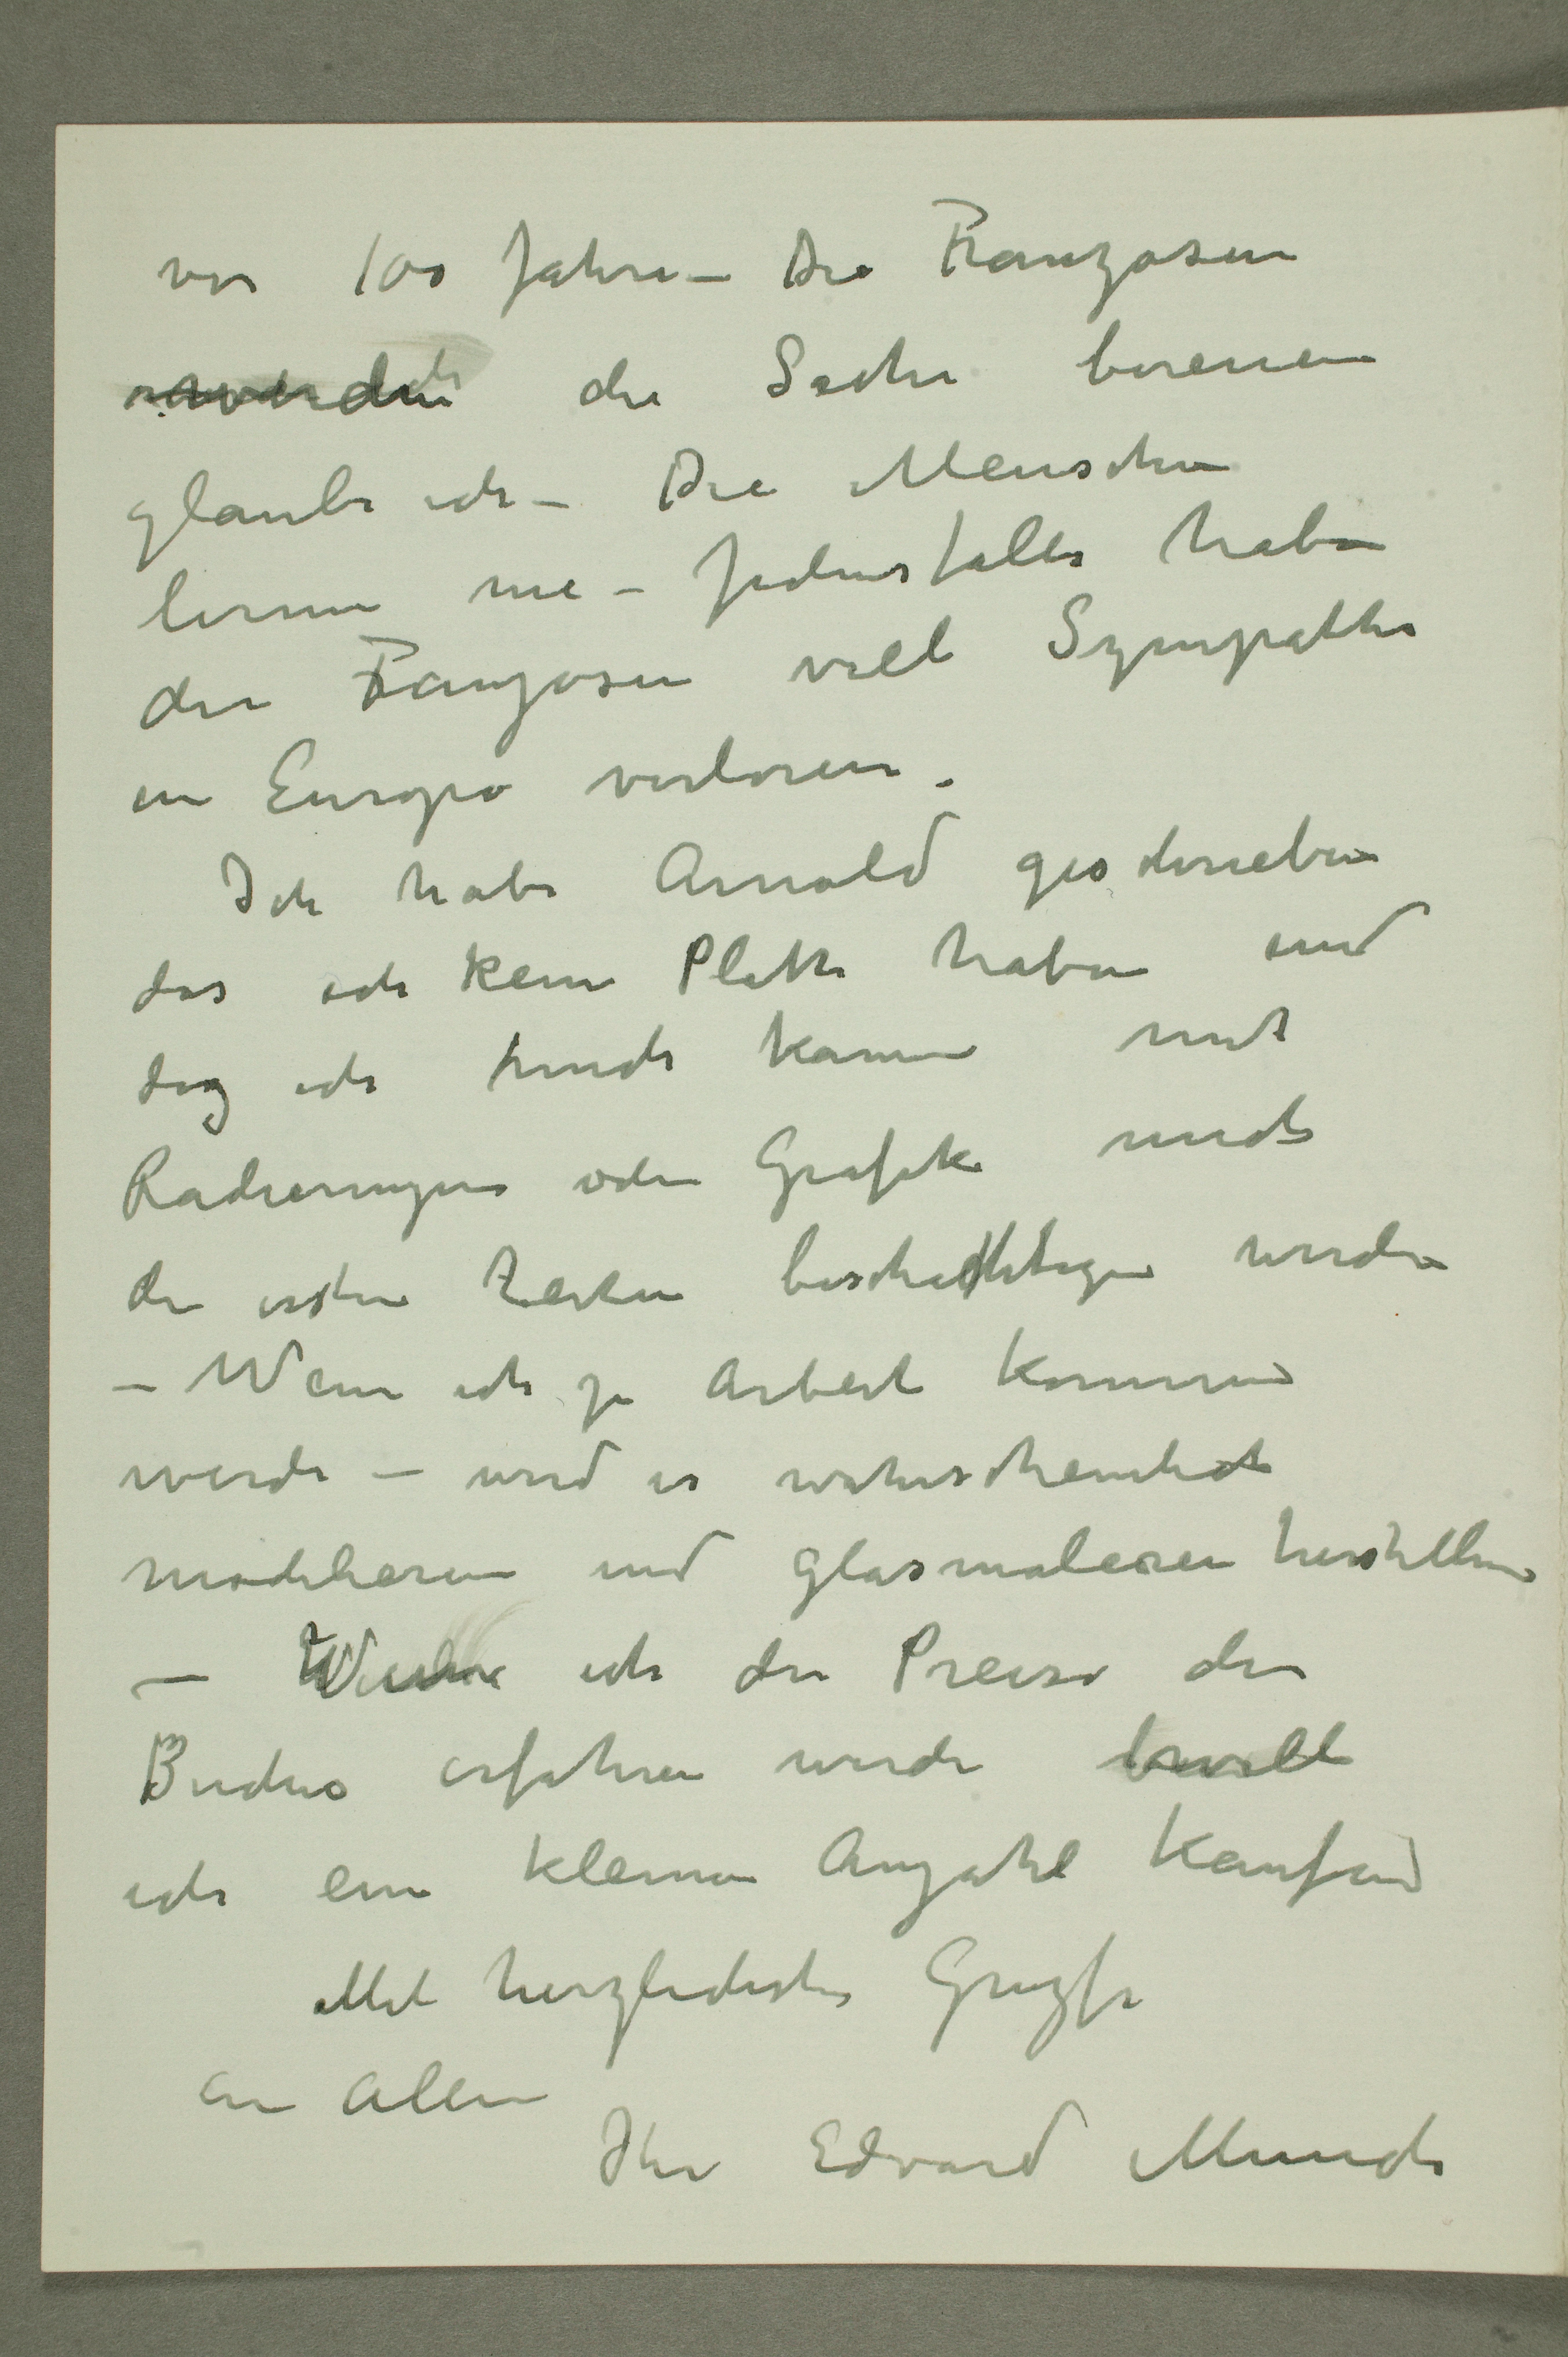 vor 100 Jahren – Die Franzosen
werden die Sache bereuen
glaube ich – Die Menschen
lernen nie – Jedenfalls haben
die Franzosen viell Sympathie
in Europa verloren.
Ich habe Arnold geschrieben
das ich keine Platte haben und
das ich kaum mit
Radierungen oder Grafik mich
die ersten Zeiten beschachtigen werde
– Wenn ich zu Arbeit kommen
werde – wird es wahrscheinlich
modelieren und Glasmaleien herstellen
– Wenn ich die Preise der
Buches erfahren werde will
ich eine kleine Anzahl kaufen
Mit herzlichsten Grüsse
an allen
Ihr Edvard Munch